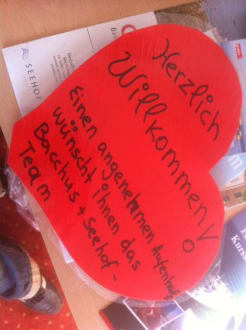 SEEHOF
Herzlich
Willkommen!
Einen angenehmen Aufenthalt
wünscht ihnen das
Bacchus + Seehof-
Team